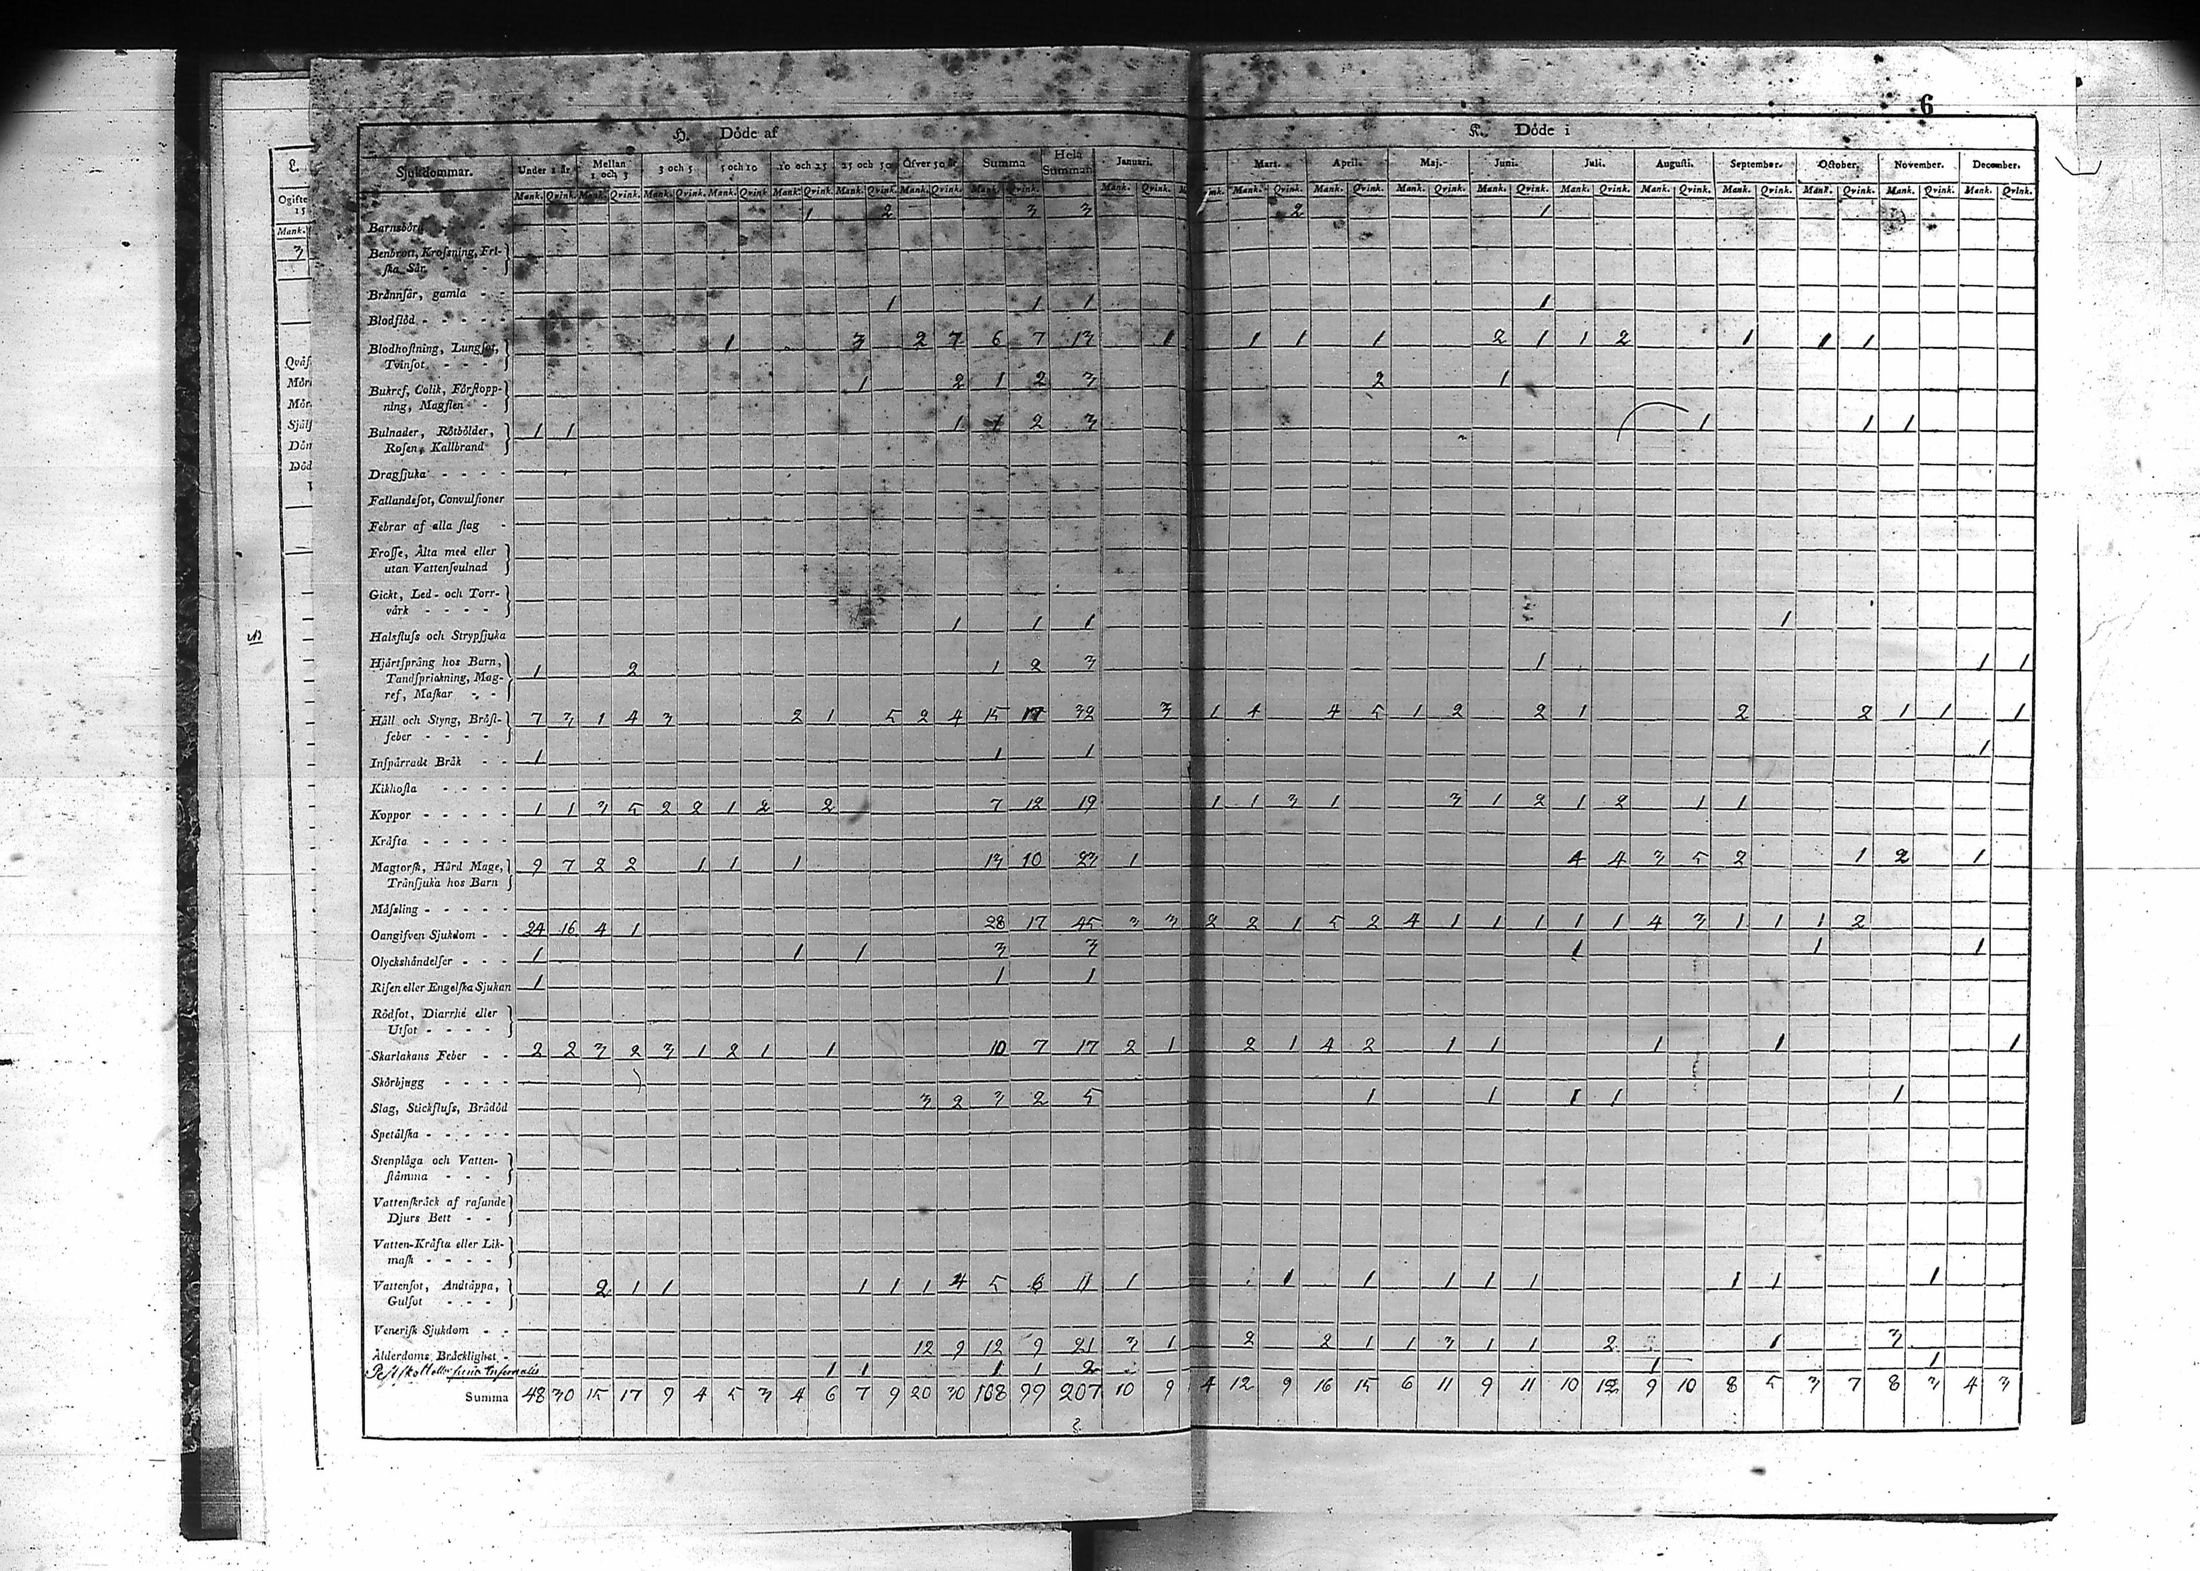 6
H. Döde af
K. Döde i
Sjukdommar. Under 1 år. Mellan 1 och 3 3 och 5 5 och 10 10 och 25 25 och 50 Öfver 50 år. Summa Hela Summan Januari. Mart. April. Maj. Juni. Juli. Augusti. September. October. November. December.
Mank. Qvink. Mank. Qvink. Mank. Qvink. Mank. Qvink. Mank. Qvink. Mank. Qvink. Mank. Qvink. Mank. Qvink. Mank. Qvink. Mank. Qvink. Mank. Qvink. Mank. Qvink. Mank. Qvink. Mank. Qvink. Mank. Qvink. Mank. Qvink. Mank. Qvink. Mank. Qvink. Mank. Qvink.
Barnsbörd 1 2 3 3 2 1
Benbrott, Krosning, Fri-
ska Sår.
Brännsår, gamla
Blodflöd 1 1 1 1
Blodhostning, Lungsot, 1 3 2 7 6 7 13 1 1 1 1 2 1 1 2 1 1 1
Tvinsot
Bukref, Colik, Förstopp- 1 2 1 2 3 2 1
ning, Magsten
Bulnader, Rötbölder, 1 1 1 1 2 3 1 1 1
Rosen, Kallbrand
Dragsjuka
Fallandesot, Convulsioner
Febrar af alla slag
Frosse, Älta med eller
utan Vattensvulnad
Gickt, Led- och Torr-
värk
Halsfluss och Strypsjuka 1 1 1 1
Hjärtsprång hos Barn, 1 2 1 2 3 1 1 1
Tandsprickning, Mag-
ref, Maskar
Håll och Styng, Bröst- 7 3 1 4 3 2 1 5 2 4 15 17 32 3 1 4 4 5 1 2 2 1 2 2 1 1 1
feber
Inspärradt Bråk 1 1 1 1
Kikhosta
Koppor 1 1 3 5 2 2 1 2 2 7 12 19 1 1 3 1 3 1 2 1 2 1 1
Kräfta
Magtorsk, Hård Mage, 9 7 2 2 1 1 1 13 10 23 1 4 4 3 5 2 1 2 1
Tränsjuka hos Barn
Mässling
Oangifven Sjukdom 24 16 4 1 28 17 45 3 3 2 2 1 5 2 4 1 1 1 1 1 4 3 1 1 1 2
Olyckshändelser 1 1 1 3 3 1 1 1
Risen eller Engelska Sjukan 1 1 1
Rödsot, Diarrhé eller
Utsot
Skarlakans Feber 2 2 3 2 3 1 2 1 1 10 7 17 2 1 2 1 4 2 1 1 1 1 1
Skörbjugg
Slag, Stickfluss, Brådöd 3 2 3 2 5 1 1 1 1 1
Spetälska
Stenplåga och Vatten-
stämma
Vattenskräck af rasande
Djurs Bett
Vatten-Kräfta eller Lik-
mask
Vattensot, Andtäppa, 2 1 1 1 1 1 4 5 6 11 1 1 1 1 1 1 1 1 1
Gulsot
Venerisk Sjukdom
Ålderdoms Bräcklighet 12 9 12 9 21 3 1 2 2 1 1 3 1 1 2 1 3
1 1 1 1 2 1 1
Summa 48 30 15 17 9 4 5 3 4 6 7 9 20 30 108 99 207 10 9 4 12 9 16 15 6 11 9 11 10 12 9 10 8 5 3 7 8 3 4 3